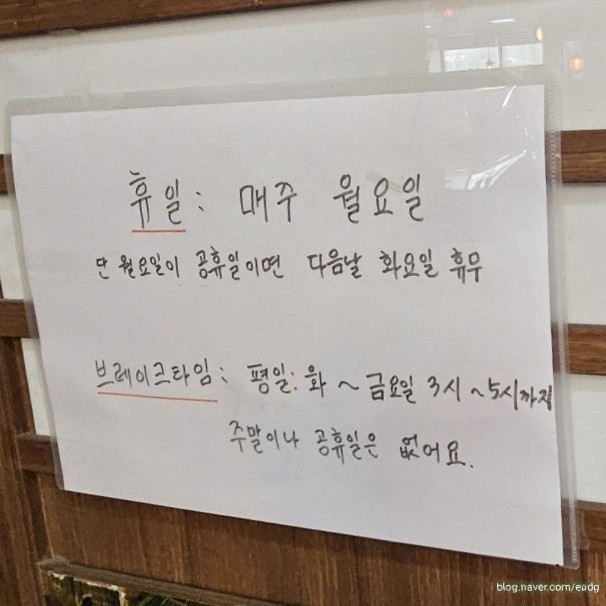 휴일: 매주 월요일
단 월요일이 공휴일이면 다음날 화요일 휴무
브레이크타임: 평일: 화 ~ 금요일 3시 ~ 5시까지
주말이나 공휴일은 없어요.
blog.naver.com/eadg